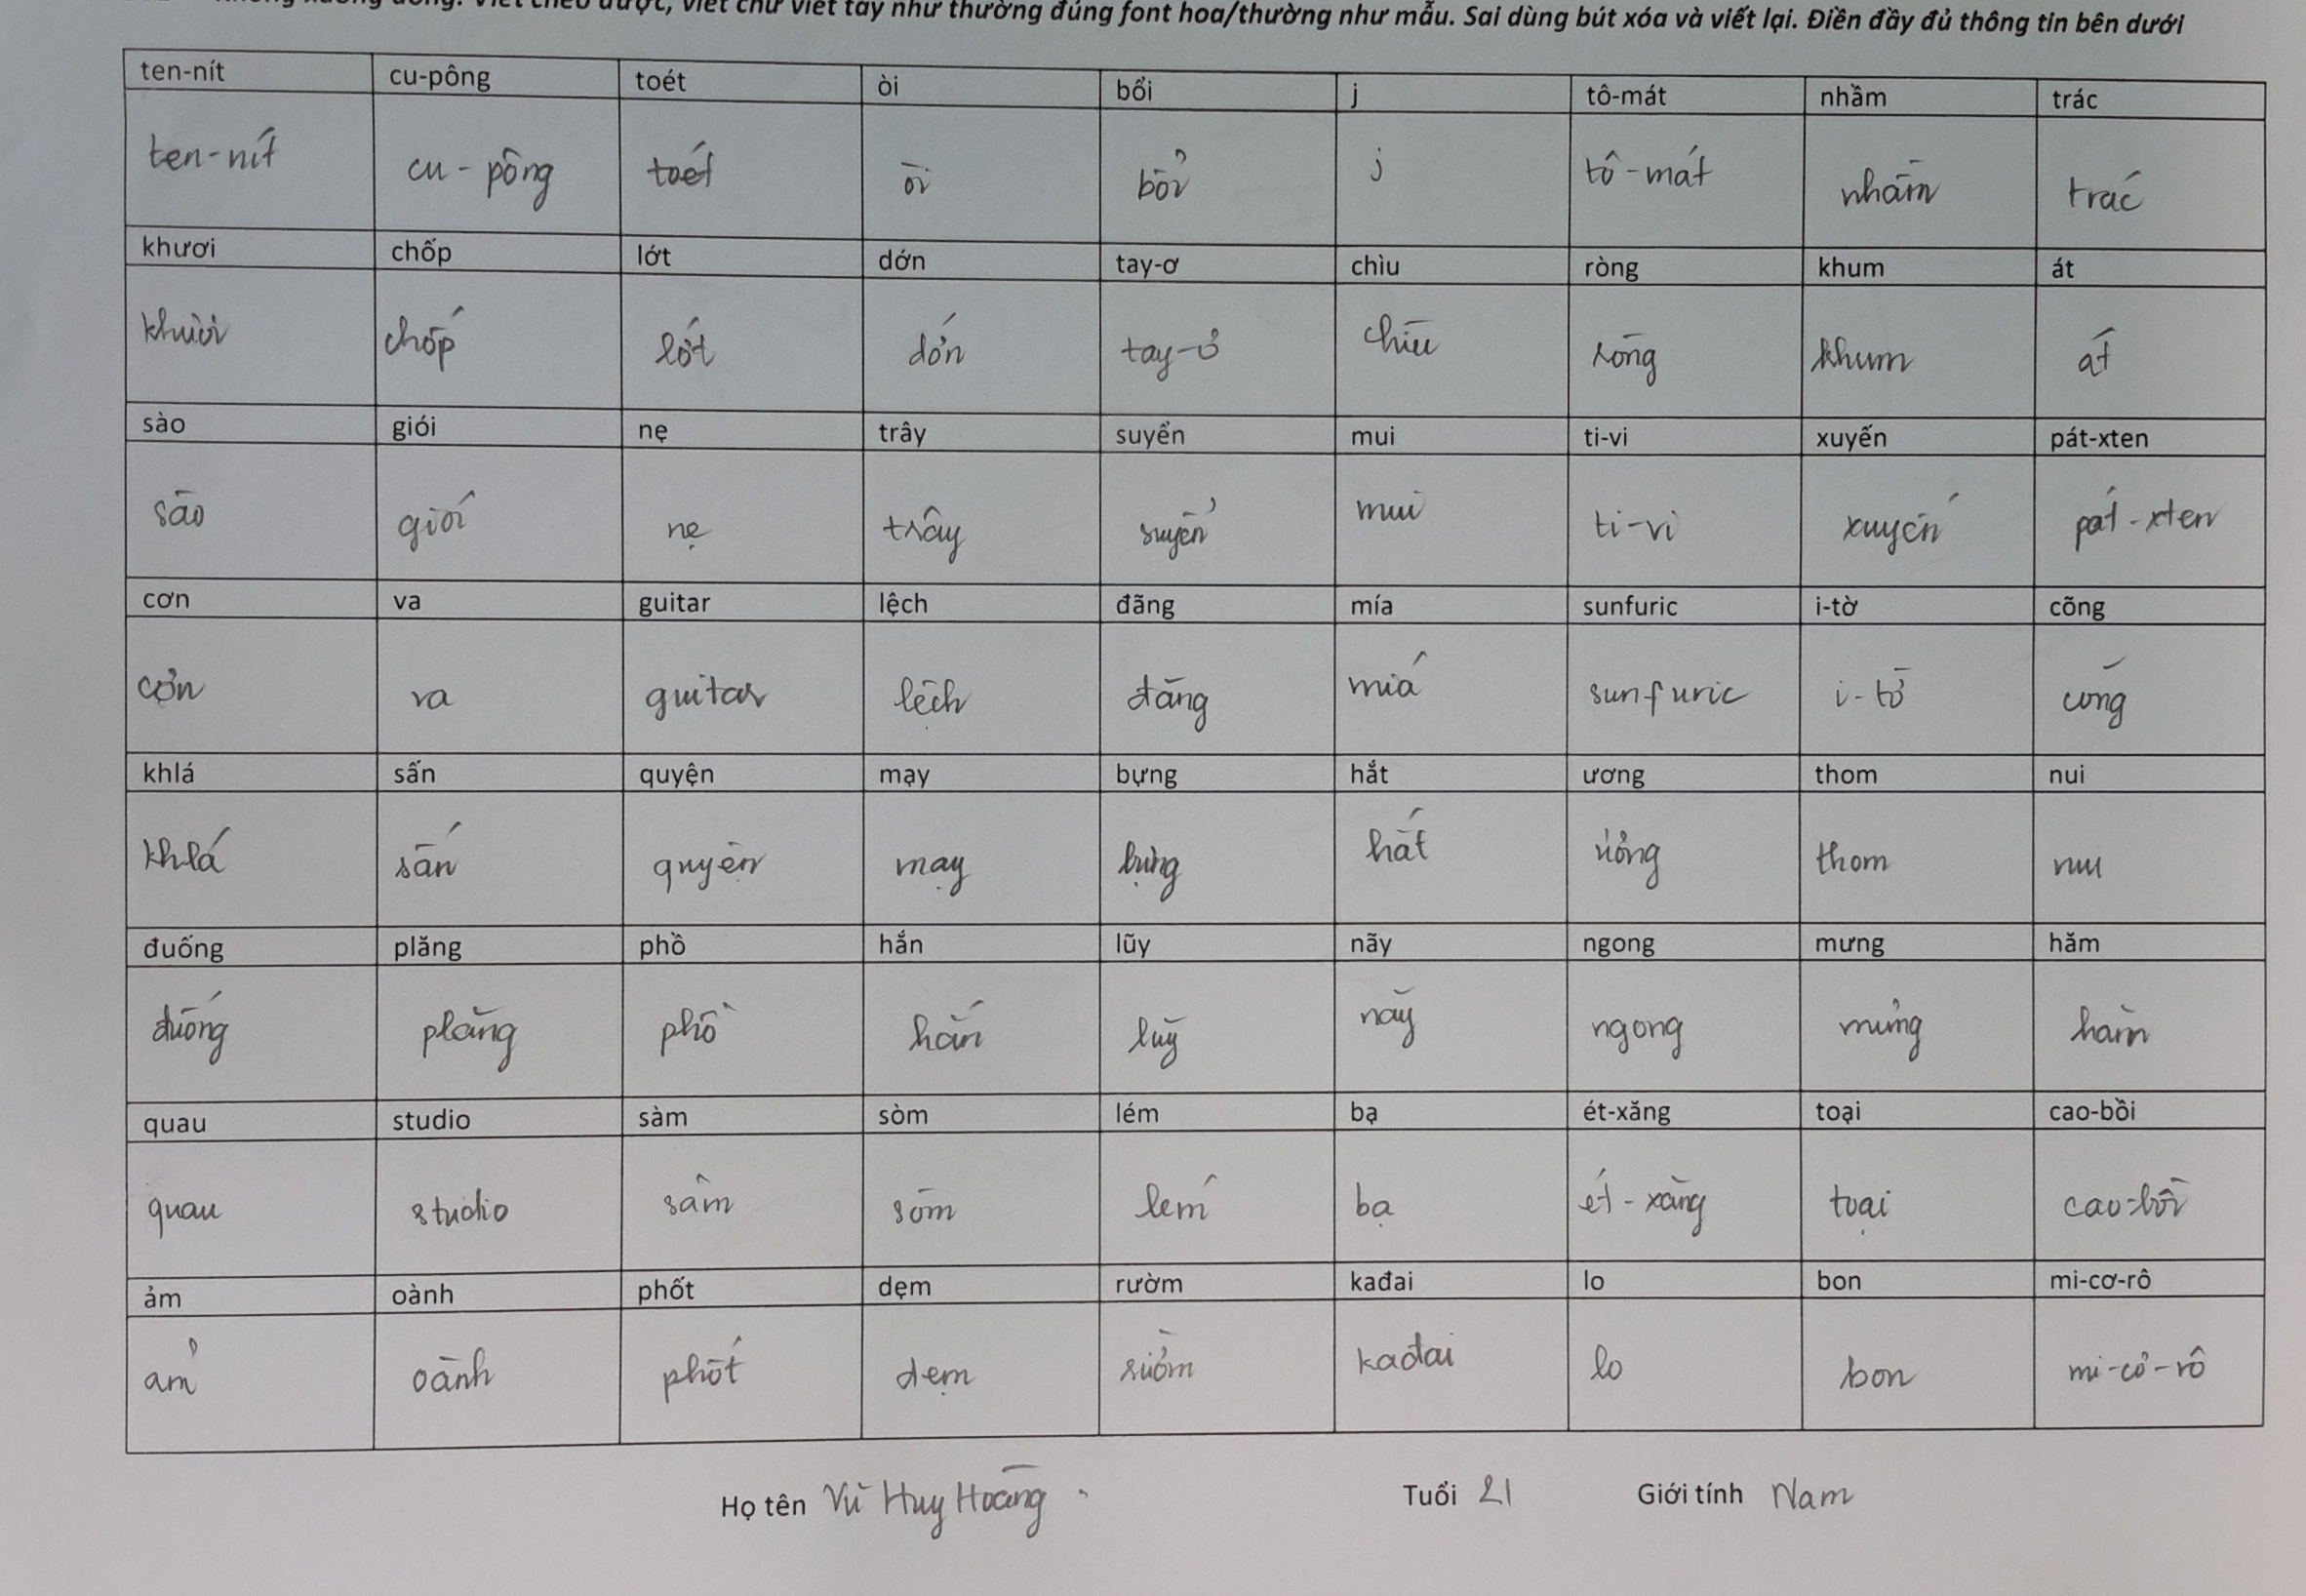 Không xuống dòng. Viết theo được, viết chữ viết tay như thường đúng font hoa/thường như mẫu. Sai dùng bút xóa và viết lại. Điền đầy đủ thông tin bên dưới
ten-nít cu-pông toét òi bổi j tô-mát nhầm trác
ten-nít cu-pông toét òi bổi j tô-mát nhầm trác
khươi chốp lớt dớn tay-ơ chìu ròng khum át
khươi chốp lớt dớn tay-ơ chìu ròng khum át
sào giói nẹ trây suyển mui ti-vi xuyến pát-xten
sào giói nẹ trây suyển mui ti-vi xuyến pát-xten
cơn va guitar lệch đãng mía sunfuric i-tờ cõng
cơn va guitar lệch đãng mía sunfuric i-tờ cõng
khlá sấn quyện mạy bựng hắt ương thom nui
khlá sấn quyện mạy bựng hắt ương thom nui
đuống plăng phồ hắn lũy nãy ngong mưng hăm
đuống plăng phồ hắn lũy nãy ngong mưng hăm
quau studio sàm sòm lém bạ ét-xăng toại cao-bồi
quau studio sàm sòm lém bạ ét-xăng toại cao-bồi
ảm oành phốt dẹm rườm kađai lo bon mi-cơ-rô
ảm oành phốt dẹm rườm kađai lo bon mi-cơ-rô
Họ tên Vũ Huy Hoàng Tuổi 21 Giới tính Nam